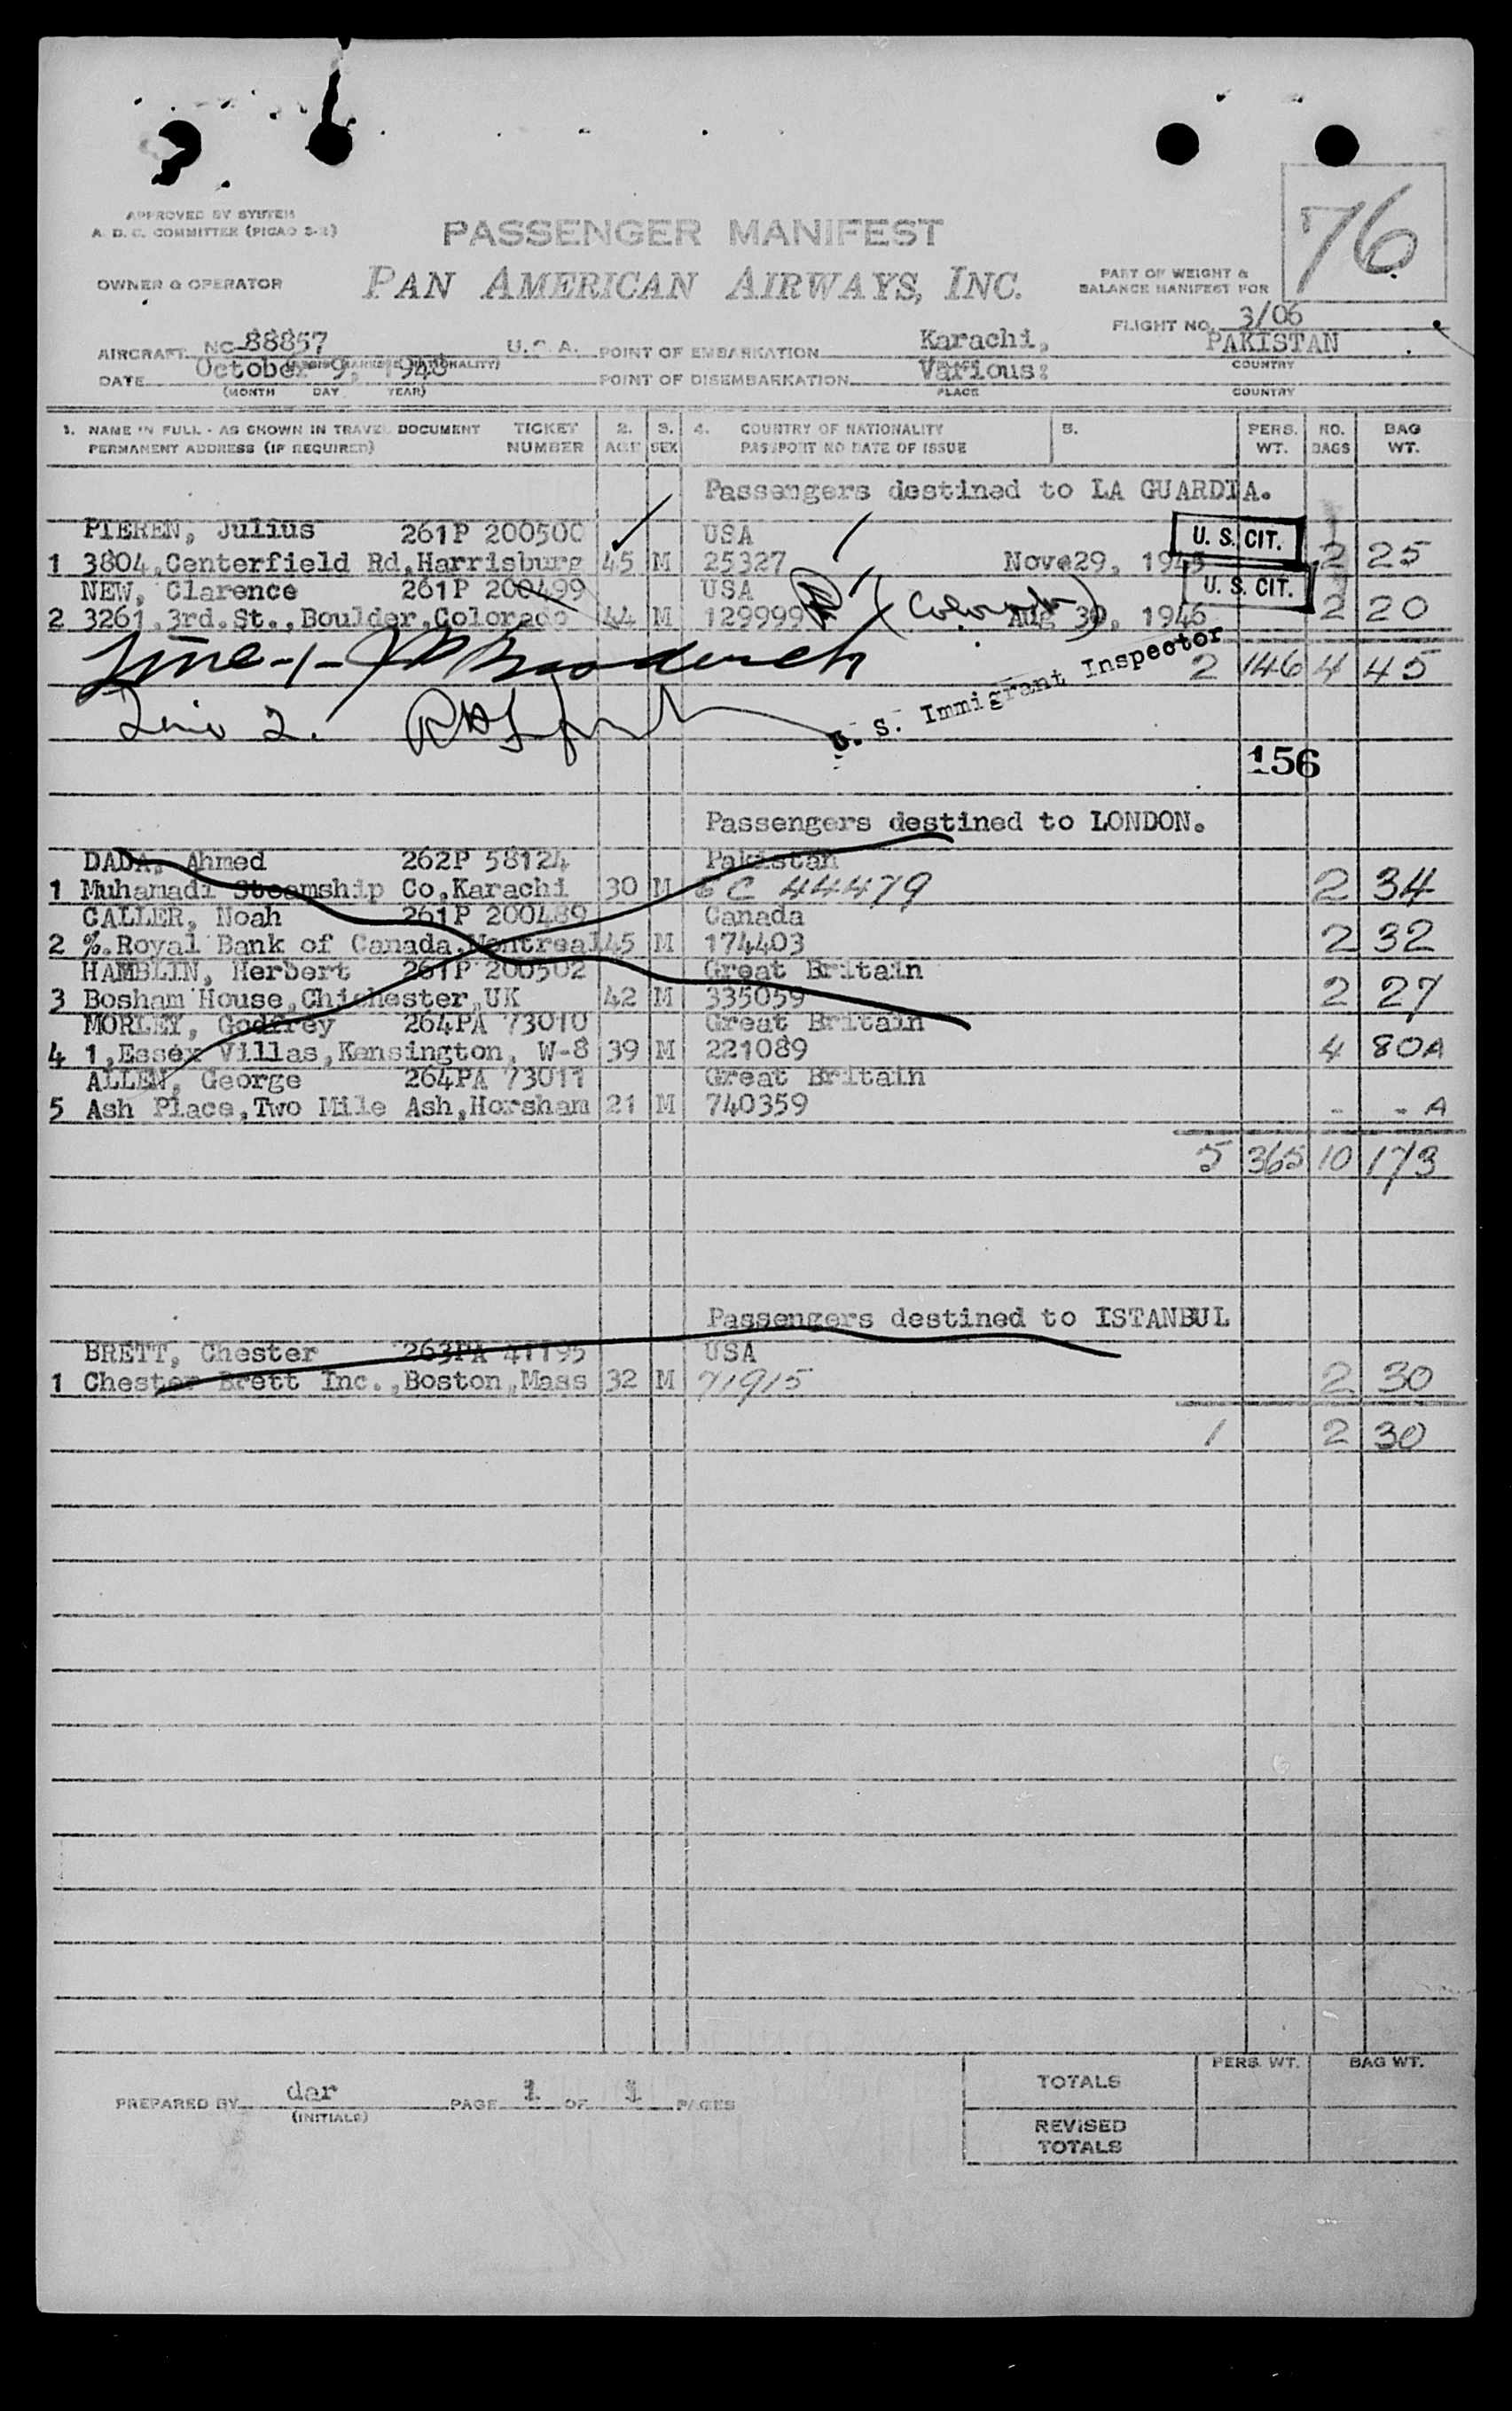 APPROVED BY SYSTEM
A. D. C. COMMITTEE (PICAO S-2)
PASSENGER MANIFEST
76
OWNER & OPERATOR
PAN AMERICAN AIRWAYS, INC.
PART OF WEIGHT &
BALANCE MANIFEST FOR
FLIGHT NO. 3/06
AIRCRAFT NC-88857 U.S.A. POINT OF EMBARKATION Karachi, PAKISTAN
COUNTRY
DATE October 9, 1948 POINT OF DISEMBARKATION Various:
(MONTH DAY YEAR) PLACE COUNTRY
1. NAME IN FULL - AS SHOWN IN TRAVEL DOCUMENT TICKET 2. 3. 4. COUNTRY OF NATIONALITY 5. PERS. NO. BAG
PERMANENT ADDRESS (IF REQUIRED) NUMBER AGE SEX PASSPORT NO DATE OF ISSUE WT. BAGS WT.
Passengers destined to LA GUARDIA.
PIEREN, Julius 261P 200500 USA U. S. CIT.
1 3804,Centerfield Rd,Harrisburg 45 M 25327 Nove29, 1945 2 25
NEW, Clarence 261P 200499 USA U. S. CIT.
2 3261,3rd.St.,Boulder,Colorado 44 M 129999 (Colorado) Aug 30, 1946 2 20
Line-1-
2 146 4 45
U. S. Immigrant Inspector
2.
156
Passengers destined to LONDON.
DADA, Ahmed 262P 58124 Pakistan
1 Muhamadi Steamship Co,Karachi 30 M C 44479 2 34
CALLER, Noah 261P 200489 Canada
2 %.Royal Bank of Canada,Montreal 45 M 174403 2 32
HAMBLIN, Herbert 261P 200502 Great Britain
3 Bosham House,Chichester,UK 42 M 335059 2 27
MORLEY, Godfrey 264PA 73010 Great Britain
4 1,Essex Villas,Kensington, W-8 39 M 221089 4 80A
ALLEN, George 264PA 73011 Great Britain
5 Ash Place,Two Mile Ash,Horsham 21 M 740359 - - A
5 365 10 173
Passengers destined to ISTANBUL
BRETT, Chester 263PA 41195 USA
1 Chester Brett Inc.,Boston,Mass 32 M 71915 2 30
1 2 30
PERS. WT. BAG WT.
TOTALS
PREPARED BY dar PAGE 1 OF 1 PAGES
(INITIALS)
REVISED
TOTALS